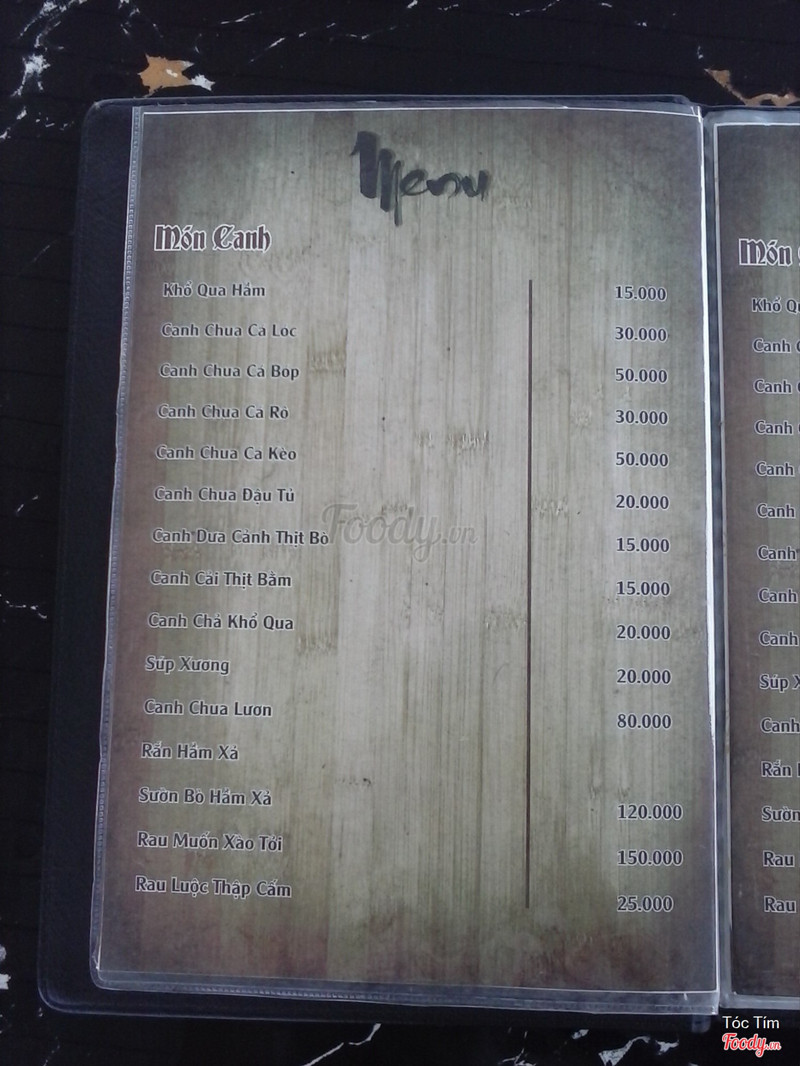 Menu
Món Canh
Khổ Qua Hầm 15.000
Canh Chua Cá Lóc 30.000
Canh Chua Cá Bóp 50.000
Canh Chua Cá Rô 30.000
Canh Chua Cá Kèo 50.000
Canh Chua Đậu Tủ 20.000
Canh Dưa Cảnh Thịt Bò 15.000
Canh Cải Thịt Bằm 15.000
Canh Chả Khổ Qua 20.000
Súp Xương 20.000
Canh Chua Lươn 80.000
Rắn Hầm Xả
Sườn Bò Hầm Xả 120.000
Rau Muốn Xào Tỏi 150.000
Rau Luộc Thập Cẩm 25.000
Foody.vn
Món
Khổ
Canh
Canh
Canh
Canh
Canh
Canh
Canh
Canh
Súp
Canh
Rắn
Sườn
Rau
Rau
Tóc Tím
Foody.vn